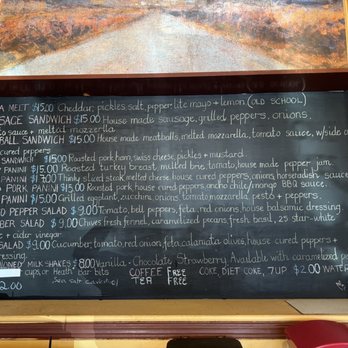 A MELT $15.00 Cheddar, pickles, salt, pepper, lite mayo + lemon (OLD SCHOOL)
SAGE SANDWICH $15.00 House made sausage, grilled peppers, onions,
to sauce + melted mozzarella
BALL SANDWICH $15.00 House made meatballs, melted mozzarella, tomato sauce, w/side o
cured peppers
SANDWICH $15.00 Roasted pork, ham, swiss cheese, pickles + mustard.
PANINI $15.00 Roasted turkey breast, melted brie, tomato, house made pepper jam.
PANINI $17.00 Thinly sliced steak, melted cheese, house cured peppers, onions, horseradish sauce
PORK PANINI $15.00 Roasted pork, house cured peppers, ancho chile/mango BBQ sauce.
PANINI $15.00 Grilled eggplant, zucchini, onions, tomato, mozzarella, pesto + peppers.
D PEPPER SALAD $9.00 Tomato, bell peppers, feta, red onions, house balsamic dressing.
BER SALAD $9.00 Chives, fresh fennel, caramelized pecans, fresh basil, 25 star-white
c + cider vinegar
SALAD $9.00 Cucumber, tomato, red onion, feta, calamata olives, house cured peppers +
dressing.
MILKSHAKES $8.00 Vanilla - Chocolate, Strawberry Available with caramelized p
cups, or Heath Bar bits COFFEE FREE COKE, DIET COKE, 7UP $2.00 WATER
TEA FREE
2.00